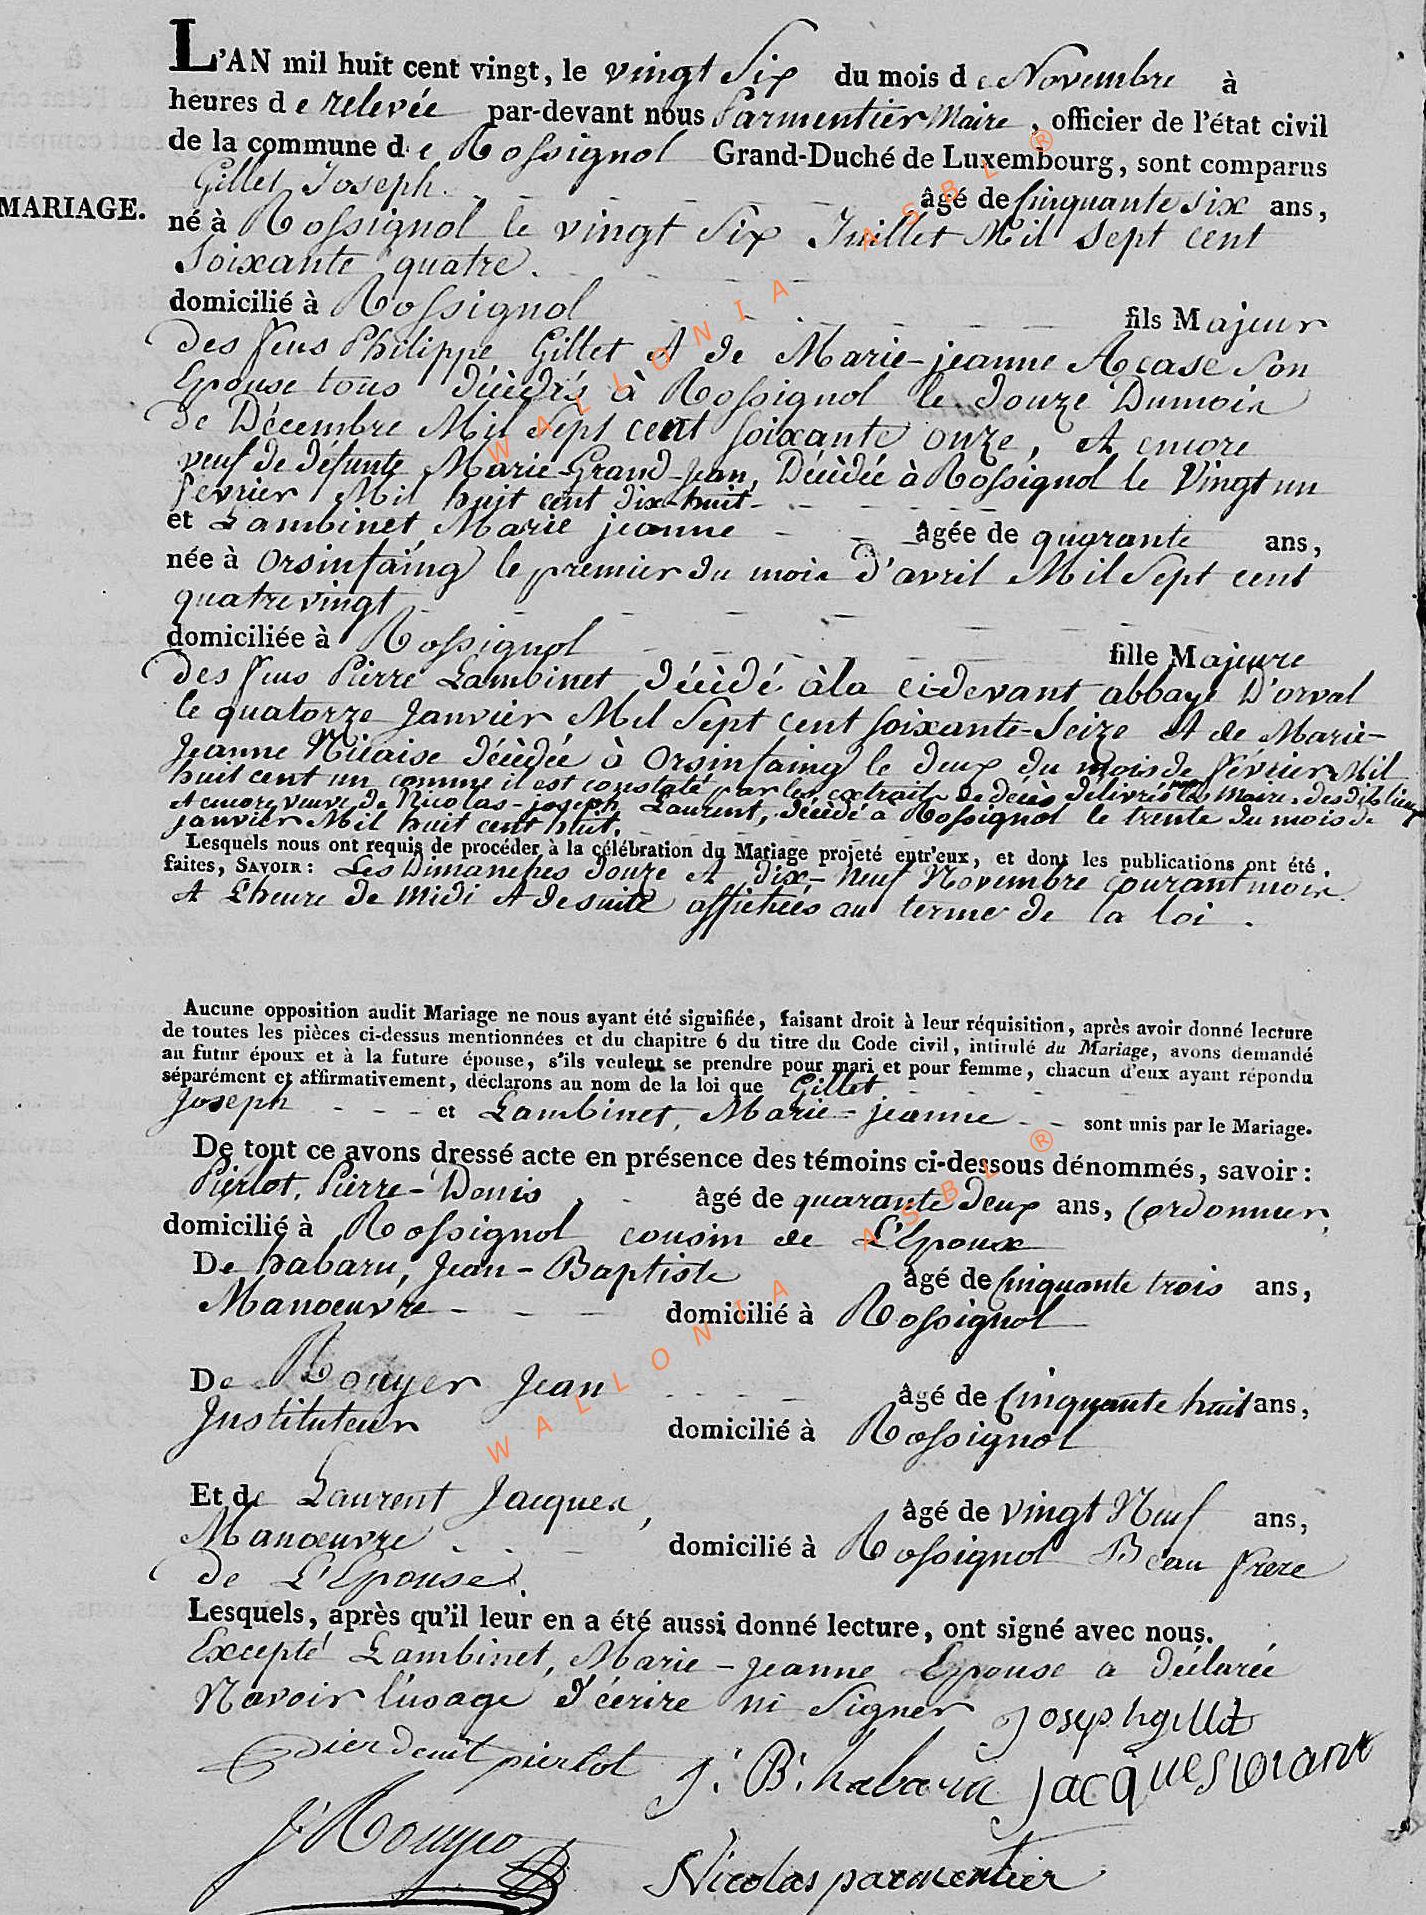 L'AN mil huit cent vingt, le vingt Six du mois de Novembre à
heures de relevée par-devant nous Parmentier Maire, officier de l'état civil
de la commune de Rossignol Grand-Duché de Luxembourg, sont comparus
Gillet Joseph. âgé de Cinquante six ans,
MARIAGE.
né à Rossignol le vingt Six Juillet Mil Sept cent
Soixante quatre.
domicilié à Rossignol fils Majeur
des feus Philippe Gillet Et de Marie-jeanne Acase Son
Epouse tous décédés à Rossignol le douze Dumois
de Décembre Mil Sept cent soixante onze, Et encore
veuf de défunte Marie-Grand-Jean, Décédée à Rossignol le Vingt un
février Mil huit cent dix-huit-
et Lambinet, Marie jeanne âgée de quarante ans,
née à Orsinfaing le premier du mois d'avril Mil Sept cent
quatre vingt
domiciliée à Rossignol fille Majeure
des feus Pierre Lambinet décédé à la ci-devant abbaye D'orval
le quatorze Janvier Mil Sept cent soixante-Seize Et de Marie-
Jeanne Nicaise décédée à Orsinfaing le deux du mois de février Mil
huit cent un comme il est constaté par les extraits de décès délivrés les Maire des dits lieux
Et encore veuve de Nicolas-joseph Laurent, décédé à Rossignol le trente du mois de
janvier Mil huit cent huit.
Lesquels nous ont requis de procéder à la célébration du Mariage projeté entr'eux, et dont les publications ont été
faites, SAVOIR : Les Dimanches douze Et dix-Neuf Novembre courant mois
Et L'heure de Midi Et de suite affichées au terme de la loi.
Aucune opposition audit Mariage ne nous ayant été signifiée, faisant droit à leur réquisition, après avoir donné lecture
de toutes les pièces ci-dessus mentionnées et du chapitre 6 du titre du Code civil, intitulé du Mariage, avons demandé
au futur époux et à la future épouse, s'ils veulent se prendre pour mari et pour femme, chacun d'eux ayant répondu
séparément et affirmativement, déclarons au nom de la loi que Gillet
Joseph et Lambinet, Marie-jeanne sont unis par le Mariage.
De tout ce avons dressé acte en présence des témoins ci-dessous dénommés, savoir :
Pierlot, Pierre-Denis âgé de quarante deux ans, Cordonnier,
domicilié à Rossignol cousin de L'Epoux
De habaru, Jean-Baptiste âgé de Cinquante trois ans,
Manœuvre domicilié à Rossignol
De Rouyer Jean âgé de Cinquante huit ans,
Instituteur domicilié à Rossignol
Et de Laurent Jacques, âgé de vingt Neuf ans,
Manœuvre domicilié à Rossignol Beau frere
de L'Epouse.
Lesquels, après qu'il leur en a été aussi donné lecture, ont signé avec nous.
Excepté Lambinet, Marie-jeanne Epouse a déclarée
N'avoir l'usage d'écrire ni Signer Joseph gillet
pierlot J. B. habaru Jacques lorant
J. Rouyer
Nicolas parmentier
WALLONIA ASBL ®
WALLONIA ASBL ®